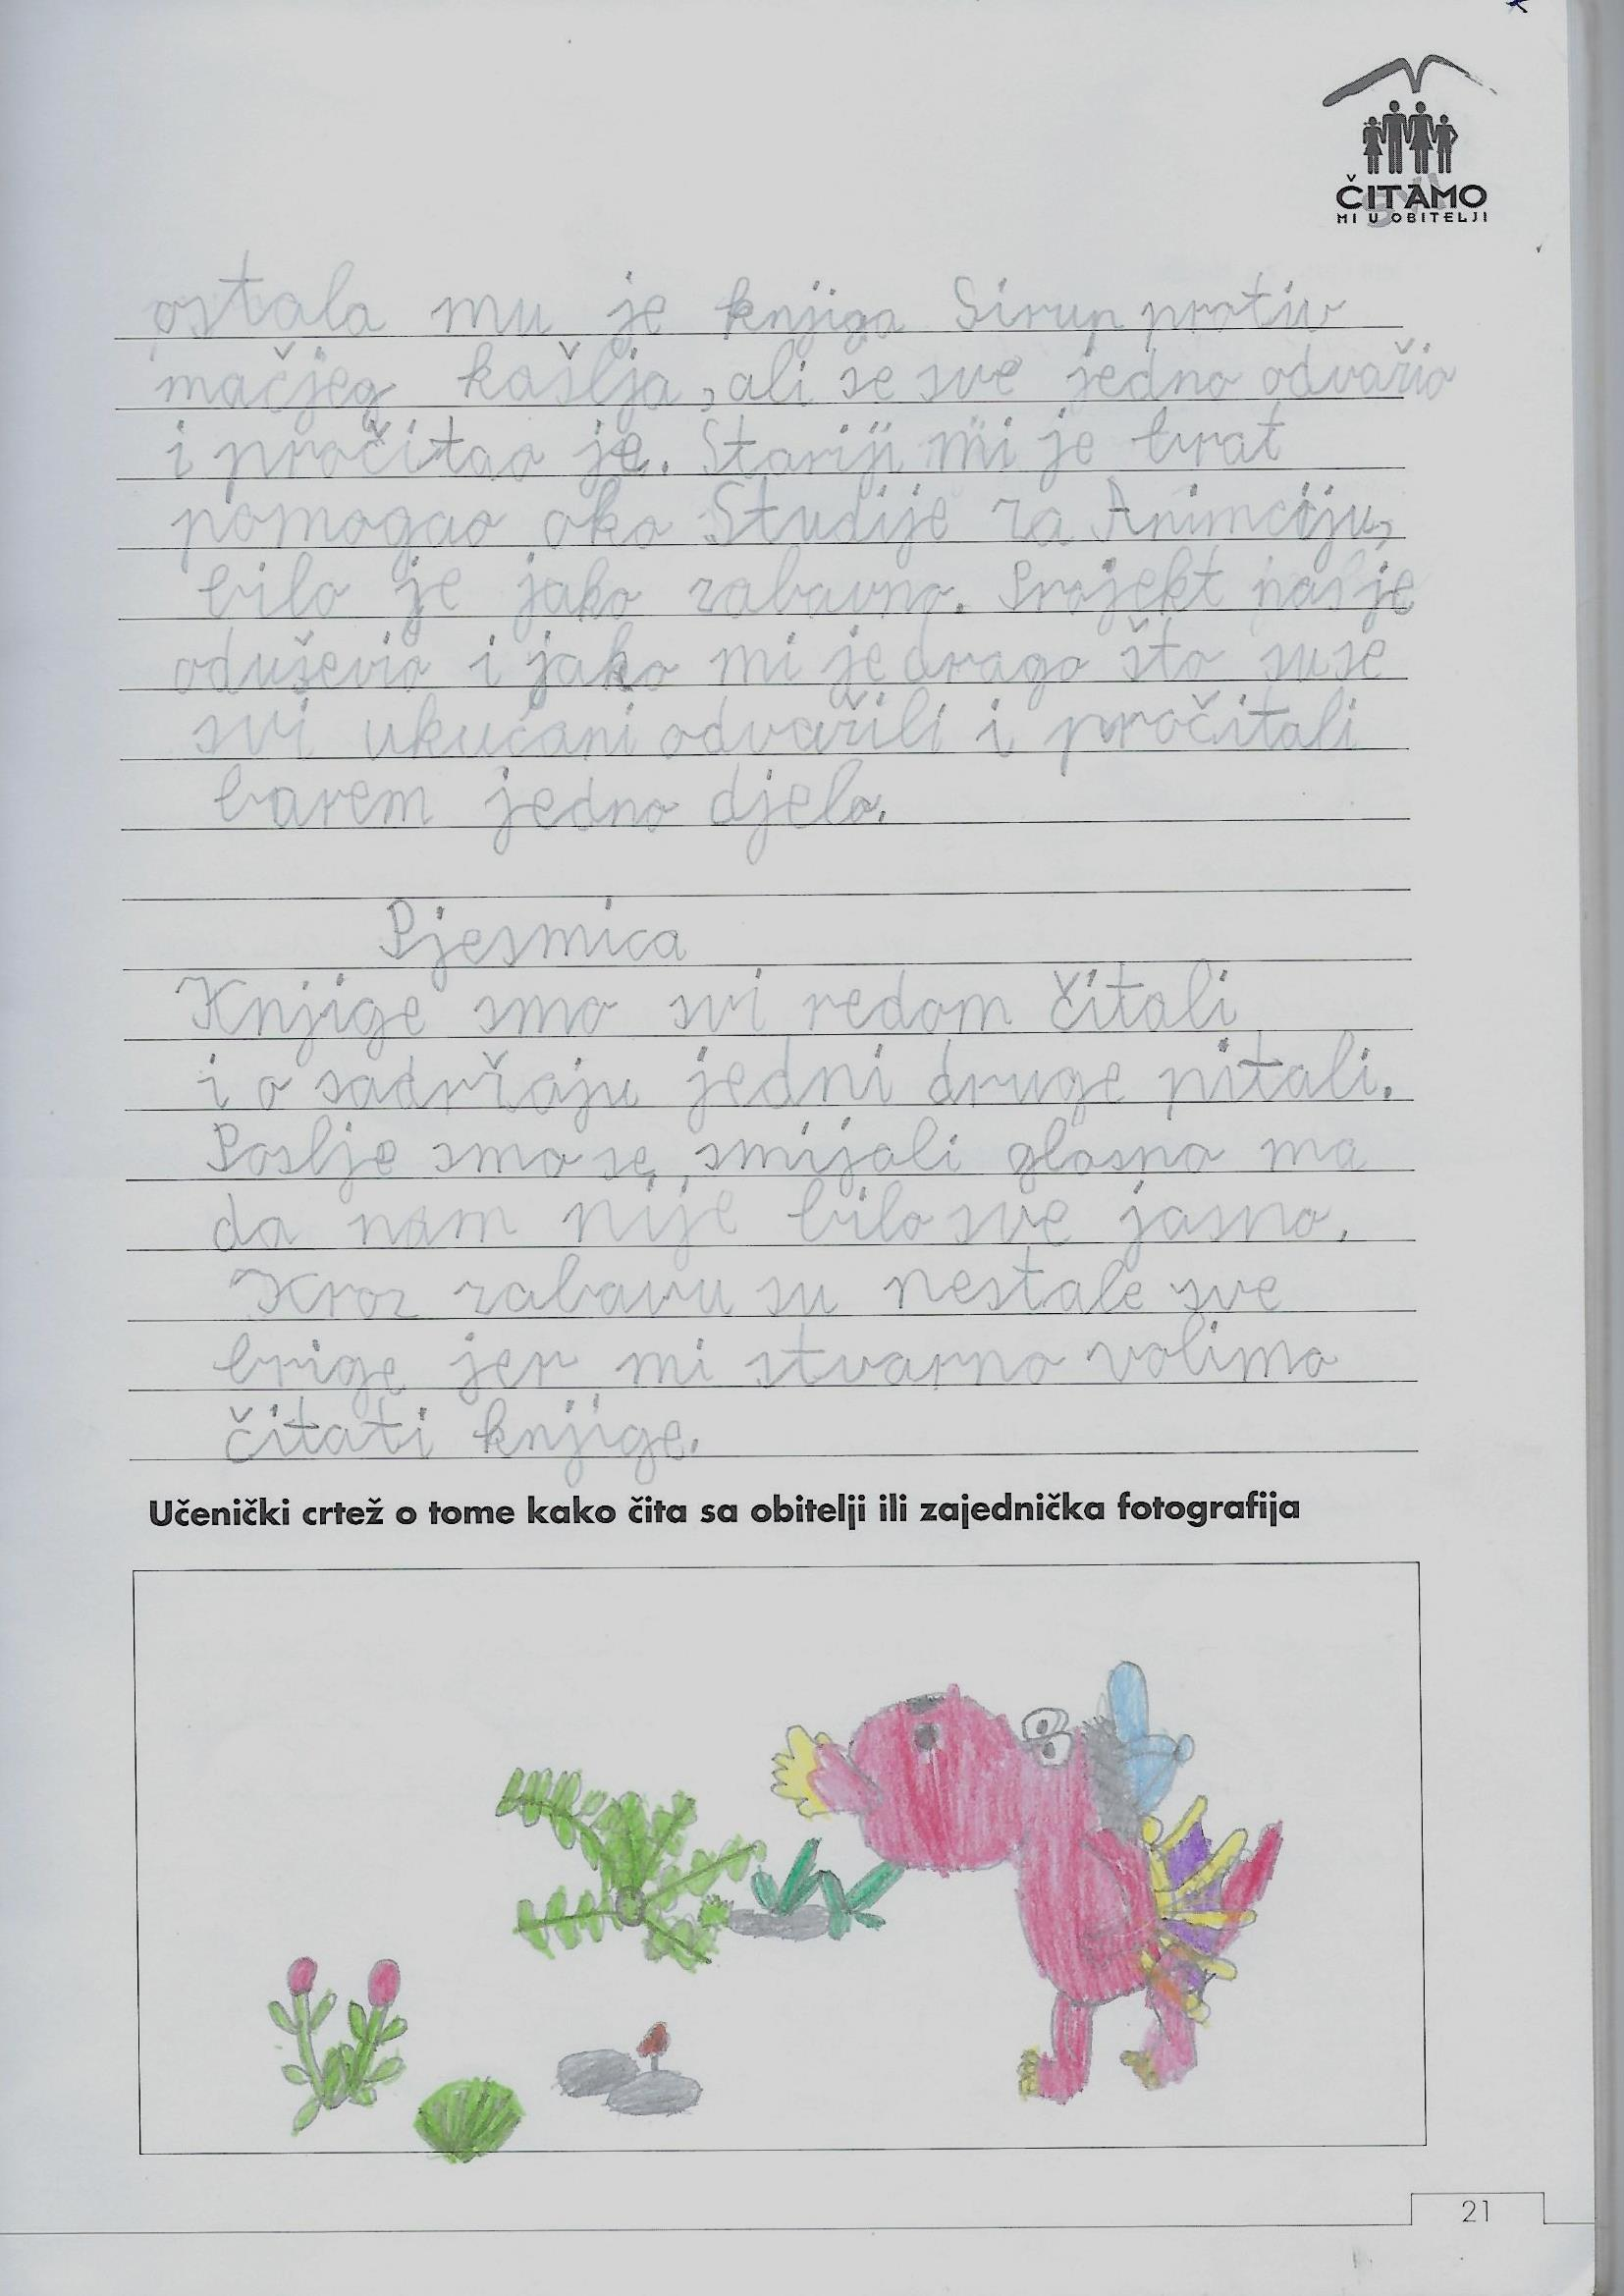 ČITAMO
MI U OBITELJI
ostala mu je knjiga Sirup protiv
mačjeg kašlja, ali se sve jedno odvažio
i pročitao je. Stariji mi je brat
pomogao oko Studije za Animciju,
bilo je jako zabavno. Projekt nas je
oduševio i jako mi je drago što su se
svi ukućani odvažili i pročitali
barem jedno djelo.
Pjesmica
Knjige smo svi redom čitali
i o sadržaju jedni druge pitali.
Poslje smo se smijali glasno ma
da nam nije bilo sve jasno.
Kroz zabavu su nestale sve
brige jer mi stvarno volimo
čitati knjige.
Učenički crtež o tome kako čita sa obitelji ili zajednička fotografija
21